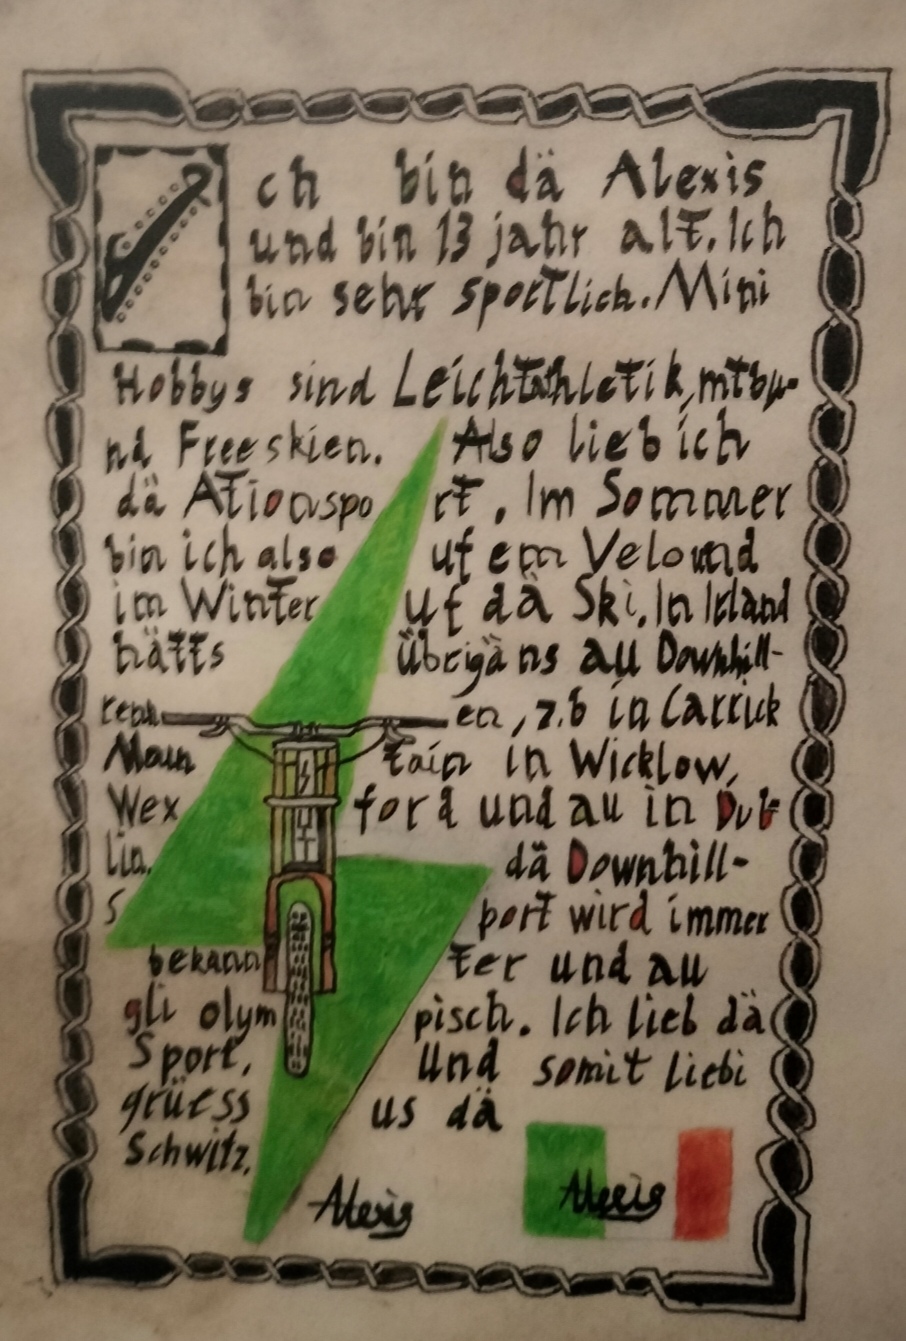 Ich bin dä Alexis
und bin 13 jahr alt. Ich
bin sehr sportlich. Mini
Hobbys sind Leichtathletik, mtb u-
nd Freeskien. Also lieb ich
dä Ationsport. Im Sommer
bin ich also uf em Velo und
im Winter uf dä Ski. In Irland
hätts Übrigäns au Downhill-
rennen, z.b in Carrick
Mountain in Wicklow,
Wexford und au in Dub-
lin. dä Downhill-
sport wird immer
bekannter und au
gli olympisch. Ich lieb dä
Sport. Und somit liebi
grüess us dä
Schwitz.
Alexis
Alexis